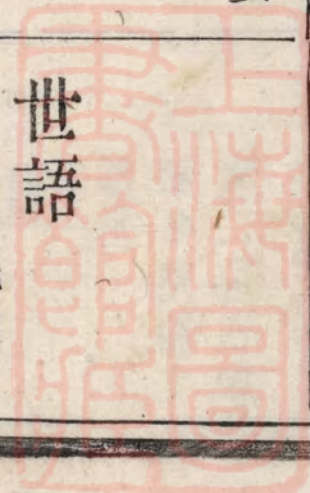 世語
上海圖
書館藏